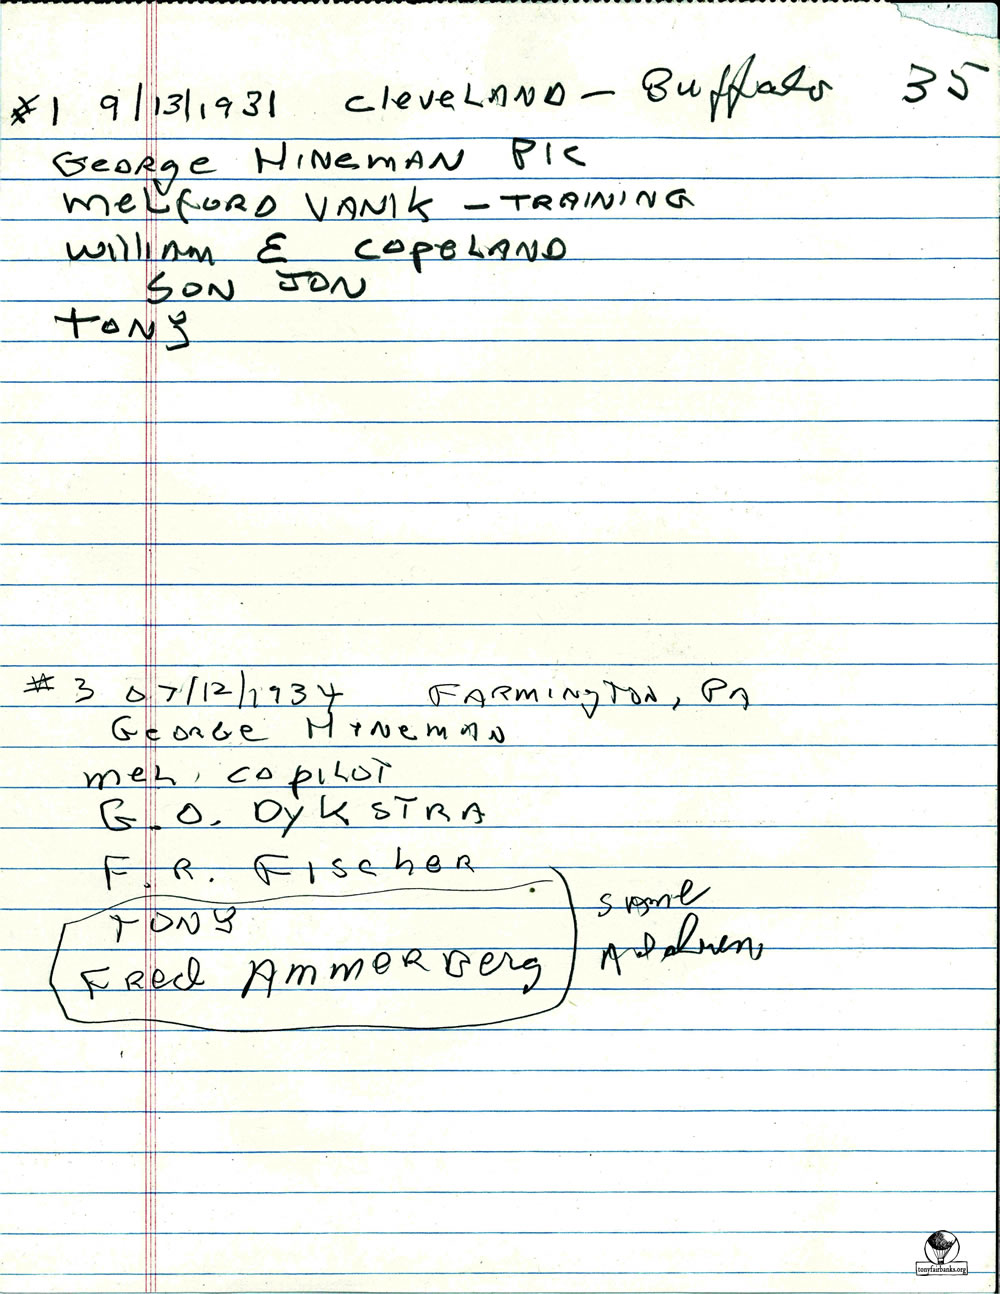 #1 9/13/1931 CleveLAND - Buffalo 35
GeORge HINemAN PIC
meLFORD VANIK - TRAINING
William E COpeLAND
SON JON
TONy
#3 07/12/1934 FARMINgTON, PA
GeORGe HINemAN
meL. COpILOT
G.O. DyKSTRA
F.R. FIscheR
TONY
FRed AmmeRBeRg
same
tonyfairbanks.org